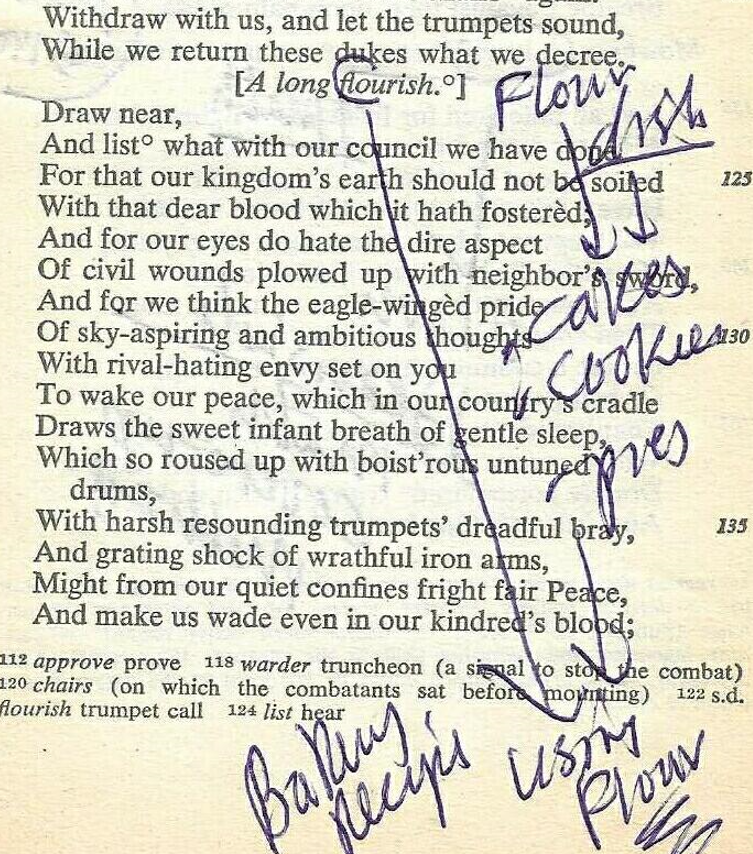 Withdraw with us, and let the trumpets sound,
While we return these dukes what we decree.
[A long flourish.°]
Flour
dish
Draw near,
And list° what with our council we have done.
For that our kingdom's earth should not be soiled 125
With that dear blood which it hath fosterèd;
And for our eyes do hate the dire aspect
Of civil wounds plowed up with neighbor's sword,
And for we think the eagle-wingèd pride
cakes
Of sky-aspiring and ambitious thoughts 130
cookies
With rival-hating envy set on you
To wake our peace, which in our country's cradle
Draws the sweet infant breath of gentle sleep,
Which so roused up with boist'rous untuned
pies
drums,
With harsh resounding trumpets' dreadful bray, 135
And grating shock of wrathful iron arms,
Might from our quiet confines fright fair Peace,
And make us wade even in our kindred's blood;
112 approve prove 118 warder truncheon (a signal to stop the combat)
120 chairs (on which the combatants sat before mounting) 122 s.d.
flourish trumpet call 124 list hear
Baking
recipis
using
Flour